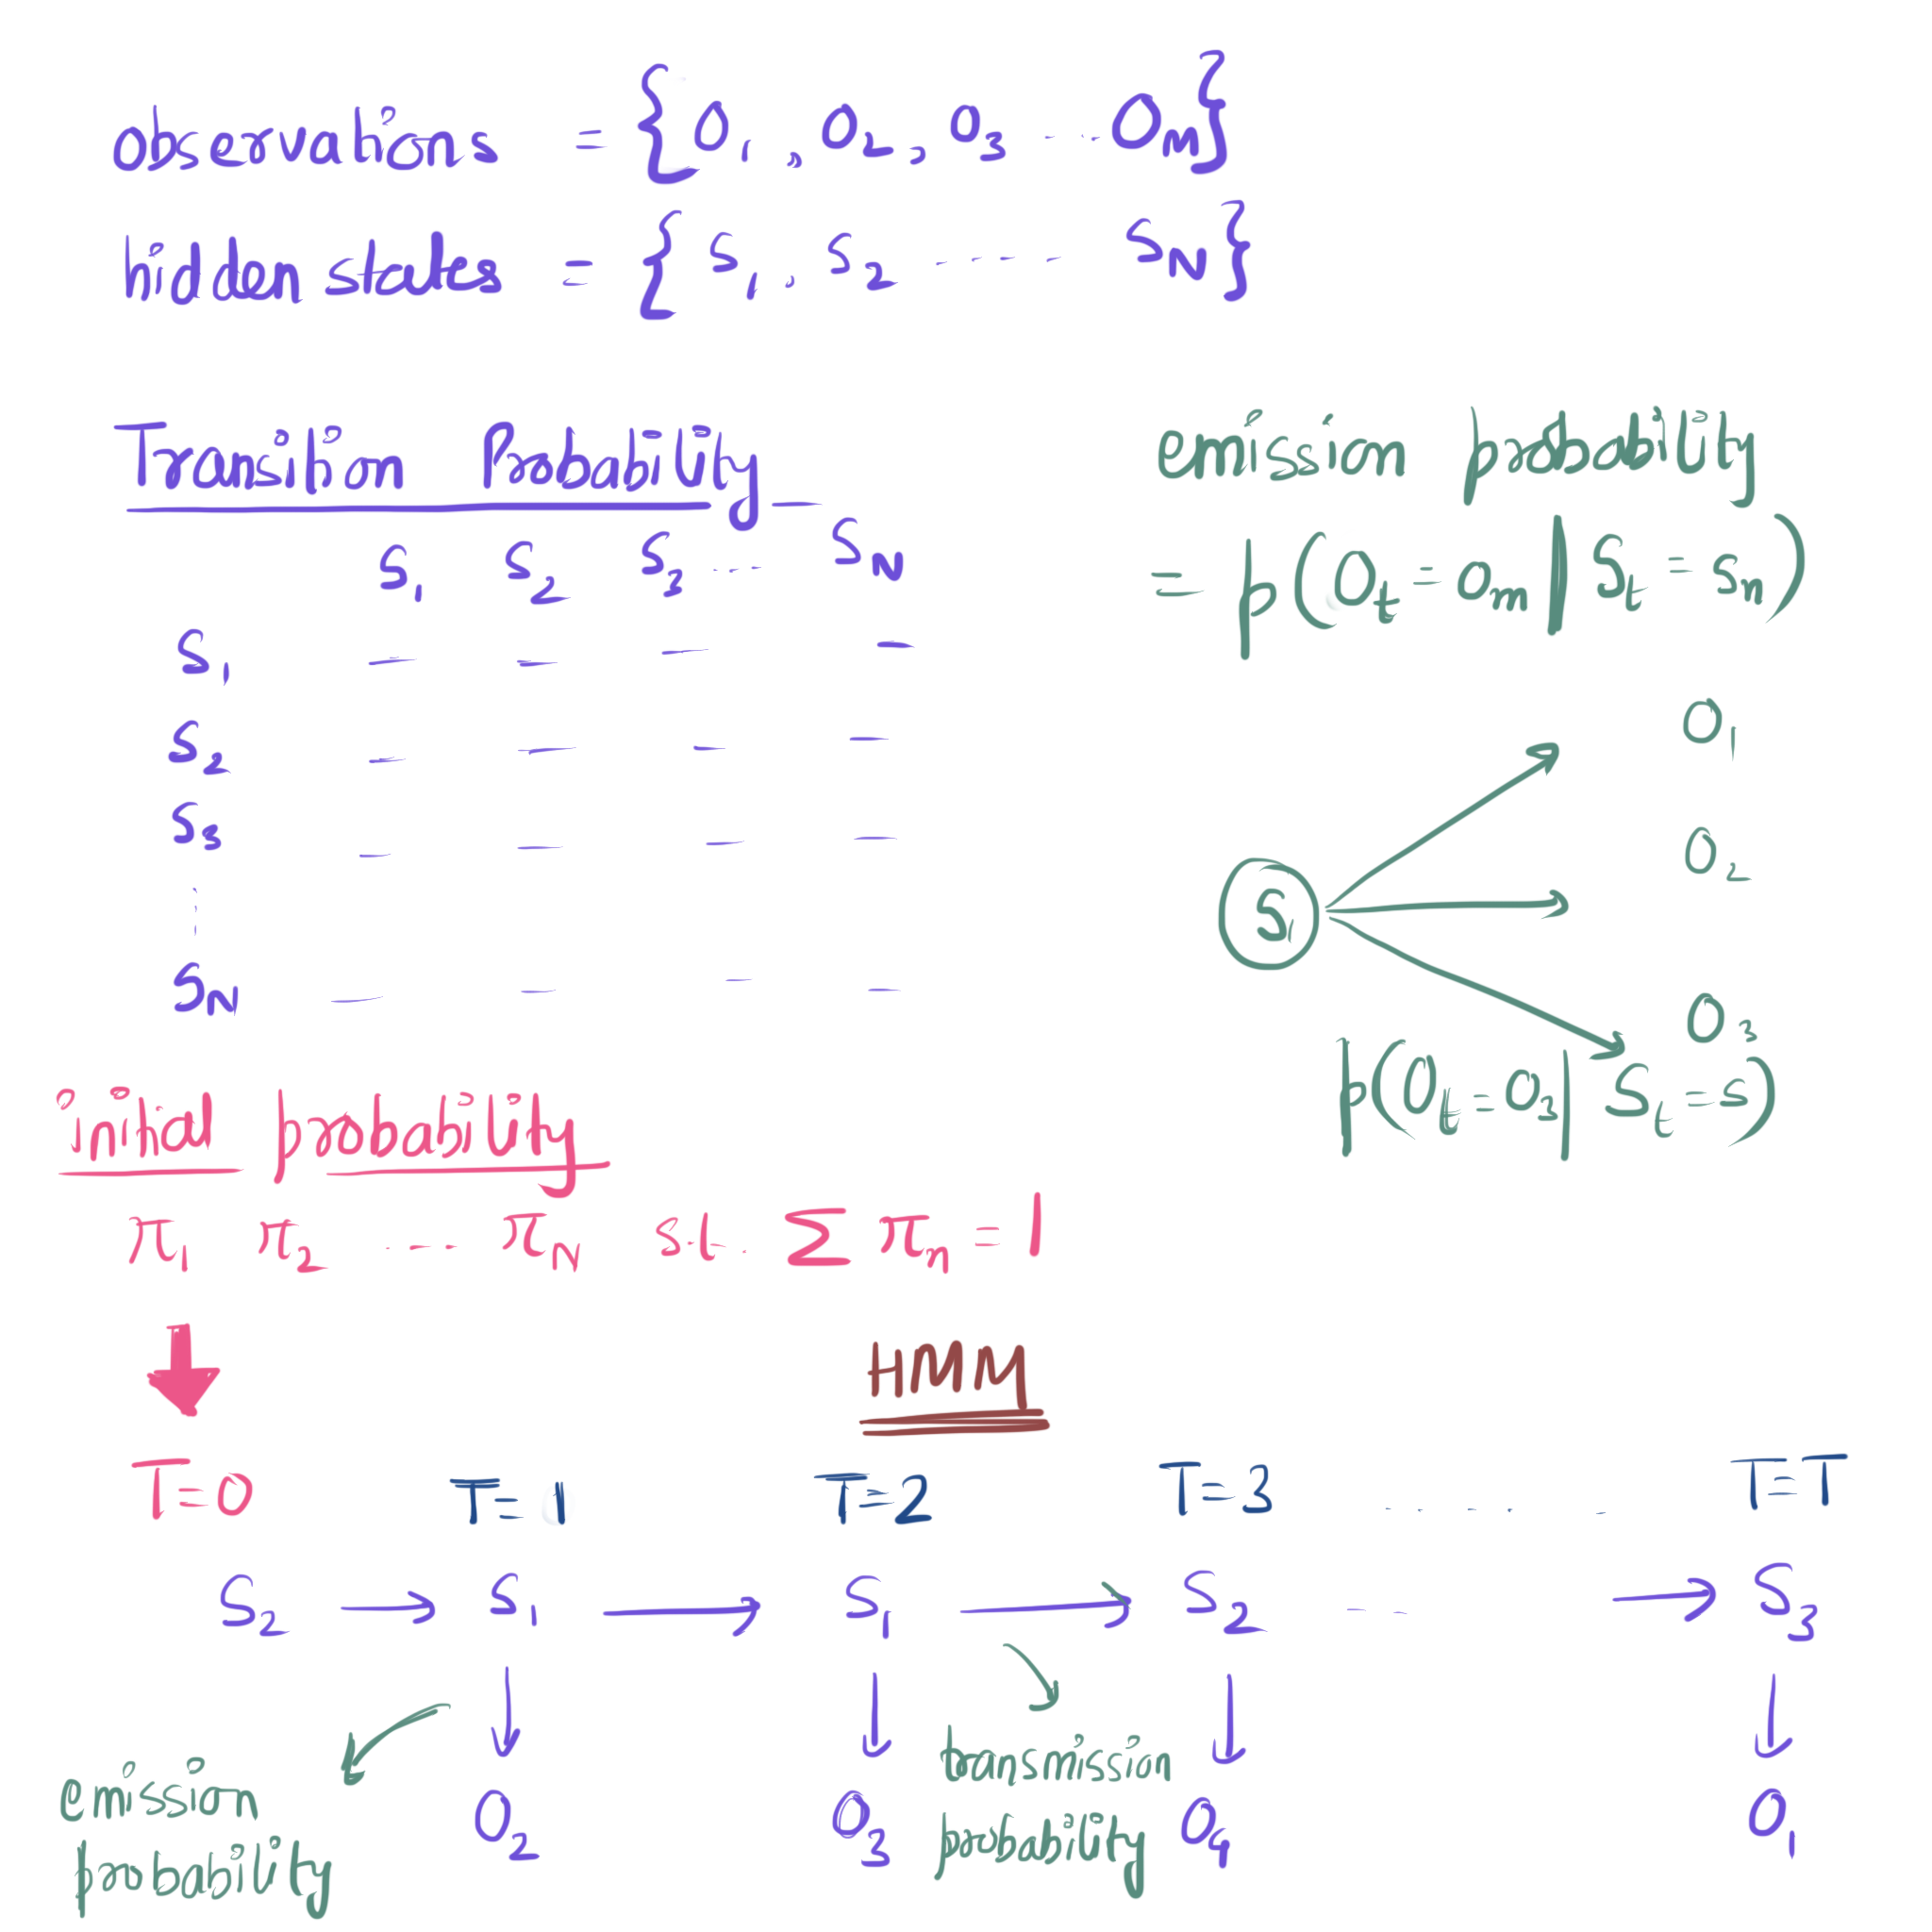 observations = {O1, O2, O3 ... OM}
hidden states = {S1, S2 ........ SN}
Transition Probability
S1 S2 S3 ... SN
S1 — — — —
S2 — — — —
S3 — — — —
⋮
SN — — — —
emission probability
= p(Ot = om | St = sn)
O1
O2
S1
O3
p(Ot = O3 | St = s)
initial probability
π1 π2 .... πN s.t. Σ πn = 1
HMM
T=0 T=1 T=2 T=3 ..... T=T
S2 → S1 → S1 → S2 -- → S3
emission probability
transmission probability
O2 O3 O4 O1